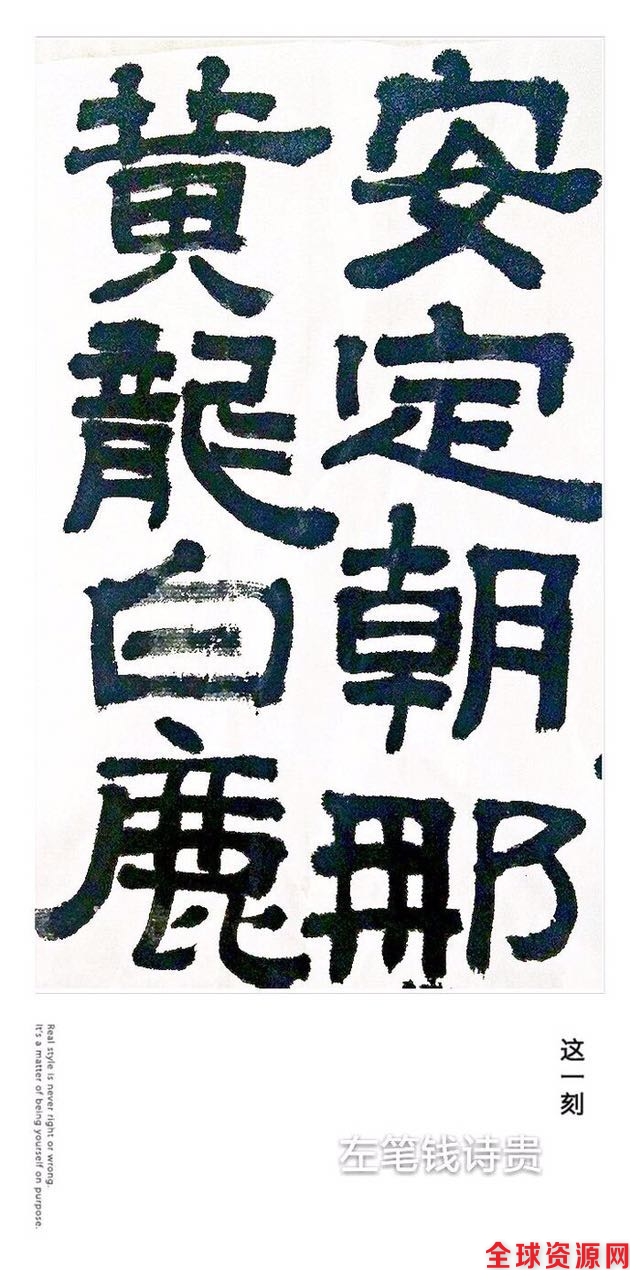 安定朝那
黃龍白鹿
这一刻
左笔钱诗贵
Real style is never right or wrong.
It's a matter of being yourself on purpose.
全球资源网